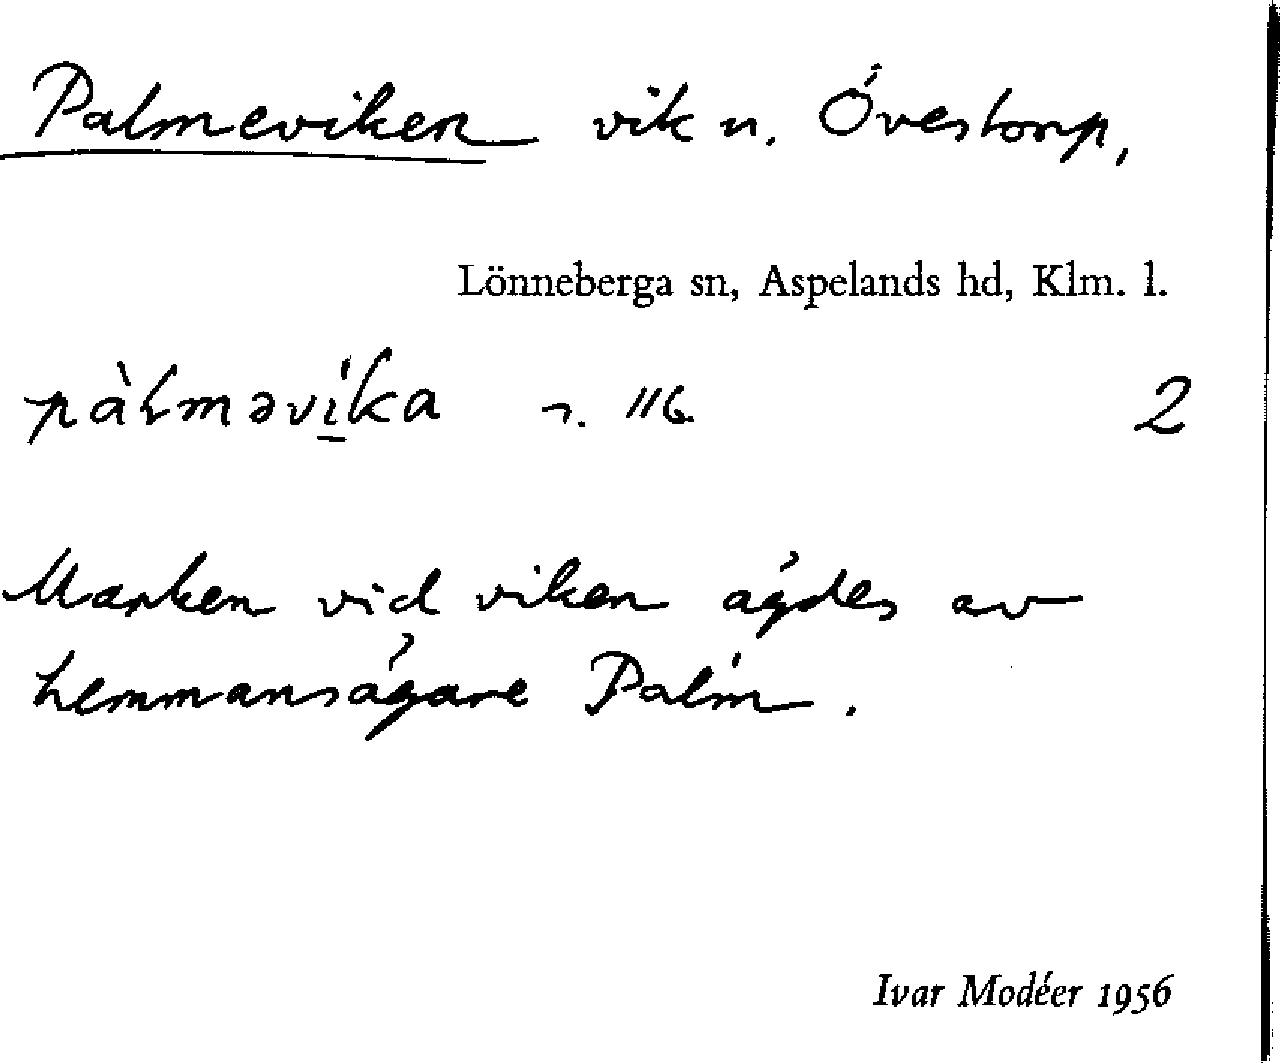 Palmeviken vik u. Övestorp,
Lönneberga sn, Aspelands hd, Klm. l.
pàlməví̲ka 2
Marken vid viken ägdes av
hemmansägare Palm.
Ivar Modéer 1956